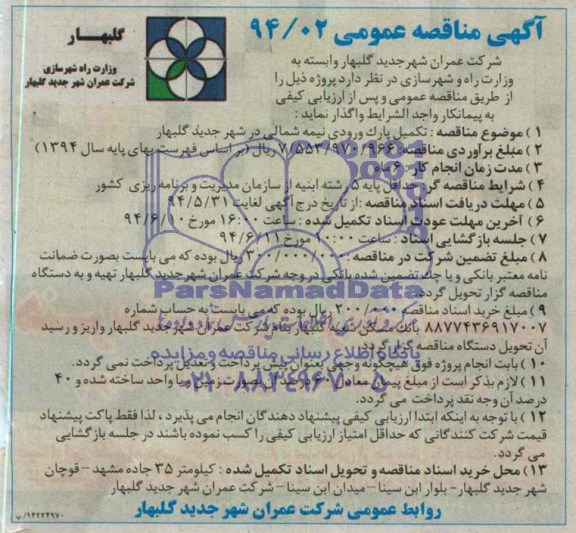 آگهی مناقصه عمومی ۹۴/۰۲
گلبهار
وزارت راه شهرسازی
شرکت عمران شهر جدید گلبهار
شرکت عمران شهرجدید گلبهار وابسته به
وزارت راه و شهرسازی در نظر دارد پروژه ذیل را
از طریق مناقصه عمومی و پس از ارزیابی کیفی
به پیمانکار واجد الشرایط واگذار نماید :
۱ ) موضوع مناقصه : تکمیل پارک ورودی نیمه شمالی در شهر جدید گلبهار
۲ ) مبلغ برآوردی مناقصه: ۷/۵۵۳/۹۷۰/۹۶۶ ریال (بر اساس فهرست بهای پایه سال ۱۳۹۴)
۳ ) مدت زمان انجام کار : ۶ ماه
۴ ) شرایط مناقصه گر: حداقل پایه ۵ رشته ابنیه از سازمان مدیریت و برنامه ریزی کشور
۵ ) مهلت دریافت اسناد مناقصه :از تاریخ درج آگهی لغایت ۹۴/۵/۳۱
۶ ) آخرین مهلت عودت اسناد تکمیل شده : ساعت ۱۶:۰۰ مورخ ۹۴/۶/۱۰
۷ ) جلسه بازگشایی اسناد : ساعت ۱۰:۰۰ مورخ ۹۴/۶/۱۱
۸ ) مبلغ تضمین شرکت در مناقصه : ۳۰۰/۰۰۰/۰۰۰ ریال بوده که می بایست بصورت ضمانت
نامه معتبر بانکی و یا چک تضمین شده بانکی در وجه شرکت عمران شهرجدید گلبهار تهیه و به دستگاه
مناقصه گزار تحویل گردد
ParsNamadData
۹ ) مبلغ خرید اسناد مناقصه ۲۰۰/۰۰۰ ریال بوده که می بایست به حساب شماره
۸۸۷۷۴۳۶۹۱۷۰۰۷ بانک مسکن شعبه گلبهار بنام شرکت عمران شهر جدید گلبهار واریز و رسید
آن تحویل دستگاه مناقصه گزار گردد.
پایگاه اطلاع رسانی مناقصه و مزایده
۱۰ ) بابت انجام پروژه فوق هیچگونه وجهی بعنوان پیش پرداخت و تعدیل پرداخت نمی گردد.
۰۲۱-۸۸۳۴۹۶۷۰-۵
۱۱ ) لازم بذکر است از مبلغ پیمان معادل ۶۰ درصد آن بصورت زمین و یا واحد ساخته شده و ۴۰
درصد آن وجه نقد پرداخت می گردد.
۱۲ ) با توجه به اینکه ابتدا ارزیابی کیفی پیشنهاد دهندگان انجام می پذیرد ، لذا فقط پاکت پیشنهاد
قیمت شرکت کنندگانی که حداقل امتیاز ارزیابی کیفی را کسب نموده باشند در جلسه بازگشایی
می گردد.
۱۳ ) محل خرید اسناد مناقصه و تحویل اسناد تکمیل شده : کیلومتر ۳۵ جاده مشهد - قوچان
شهر جدید گلبهار- بلوار ابن سینا – میدان ابن سینا – شرکت عمران شهر جدید گلبهار
روابط عمومی شرکت عمران شهر جدید گلبهار
۹۴۲۲۴۹۷۰/پ